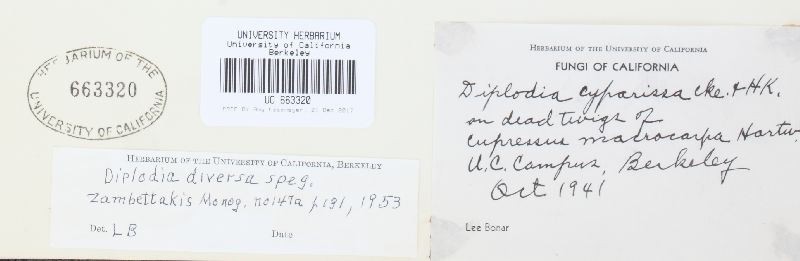 HERBARIUM OF THE
663320
UNIVERSITY OF CALIFORNIA
UNIVERSITY HERBARIUM
University of California
Berkeley
UC 663320
21 Dec 2017
HERBARIUM OF THE UNIVERSITY OF CALIFORNIA, BERKELEY
Diplodia diversa speg.
Zambettakis Monog. no147a p191, 1953
Det. LB Date
HERBARIUM OF THE UNIVERSITY OF CALIFORNIA
FUNGI OF CALIFORNIA
Diplodia cyparissa cke. & HK.
on dead twigs of
cupressus macrocarpa Hartw.
U.C. Campus, Berkeley
Oct 1941
Lee Bonar